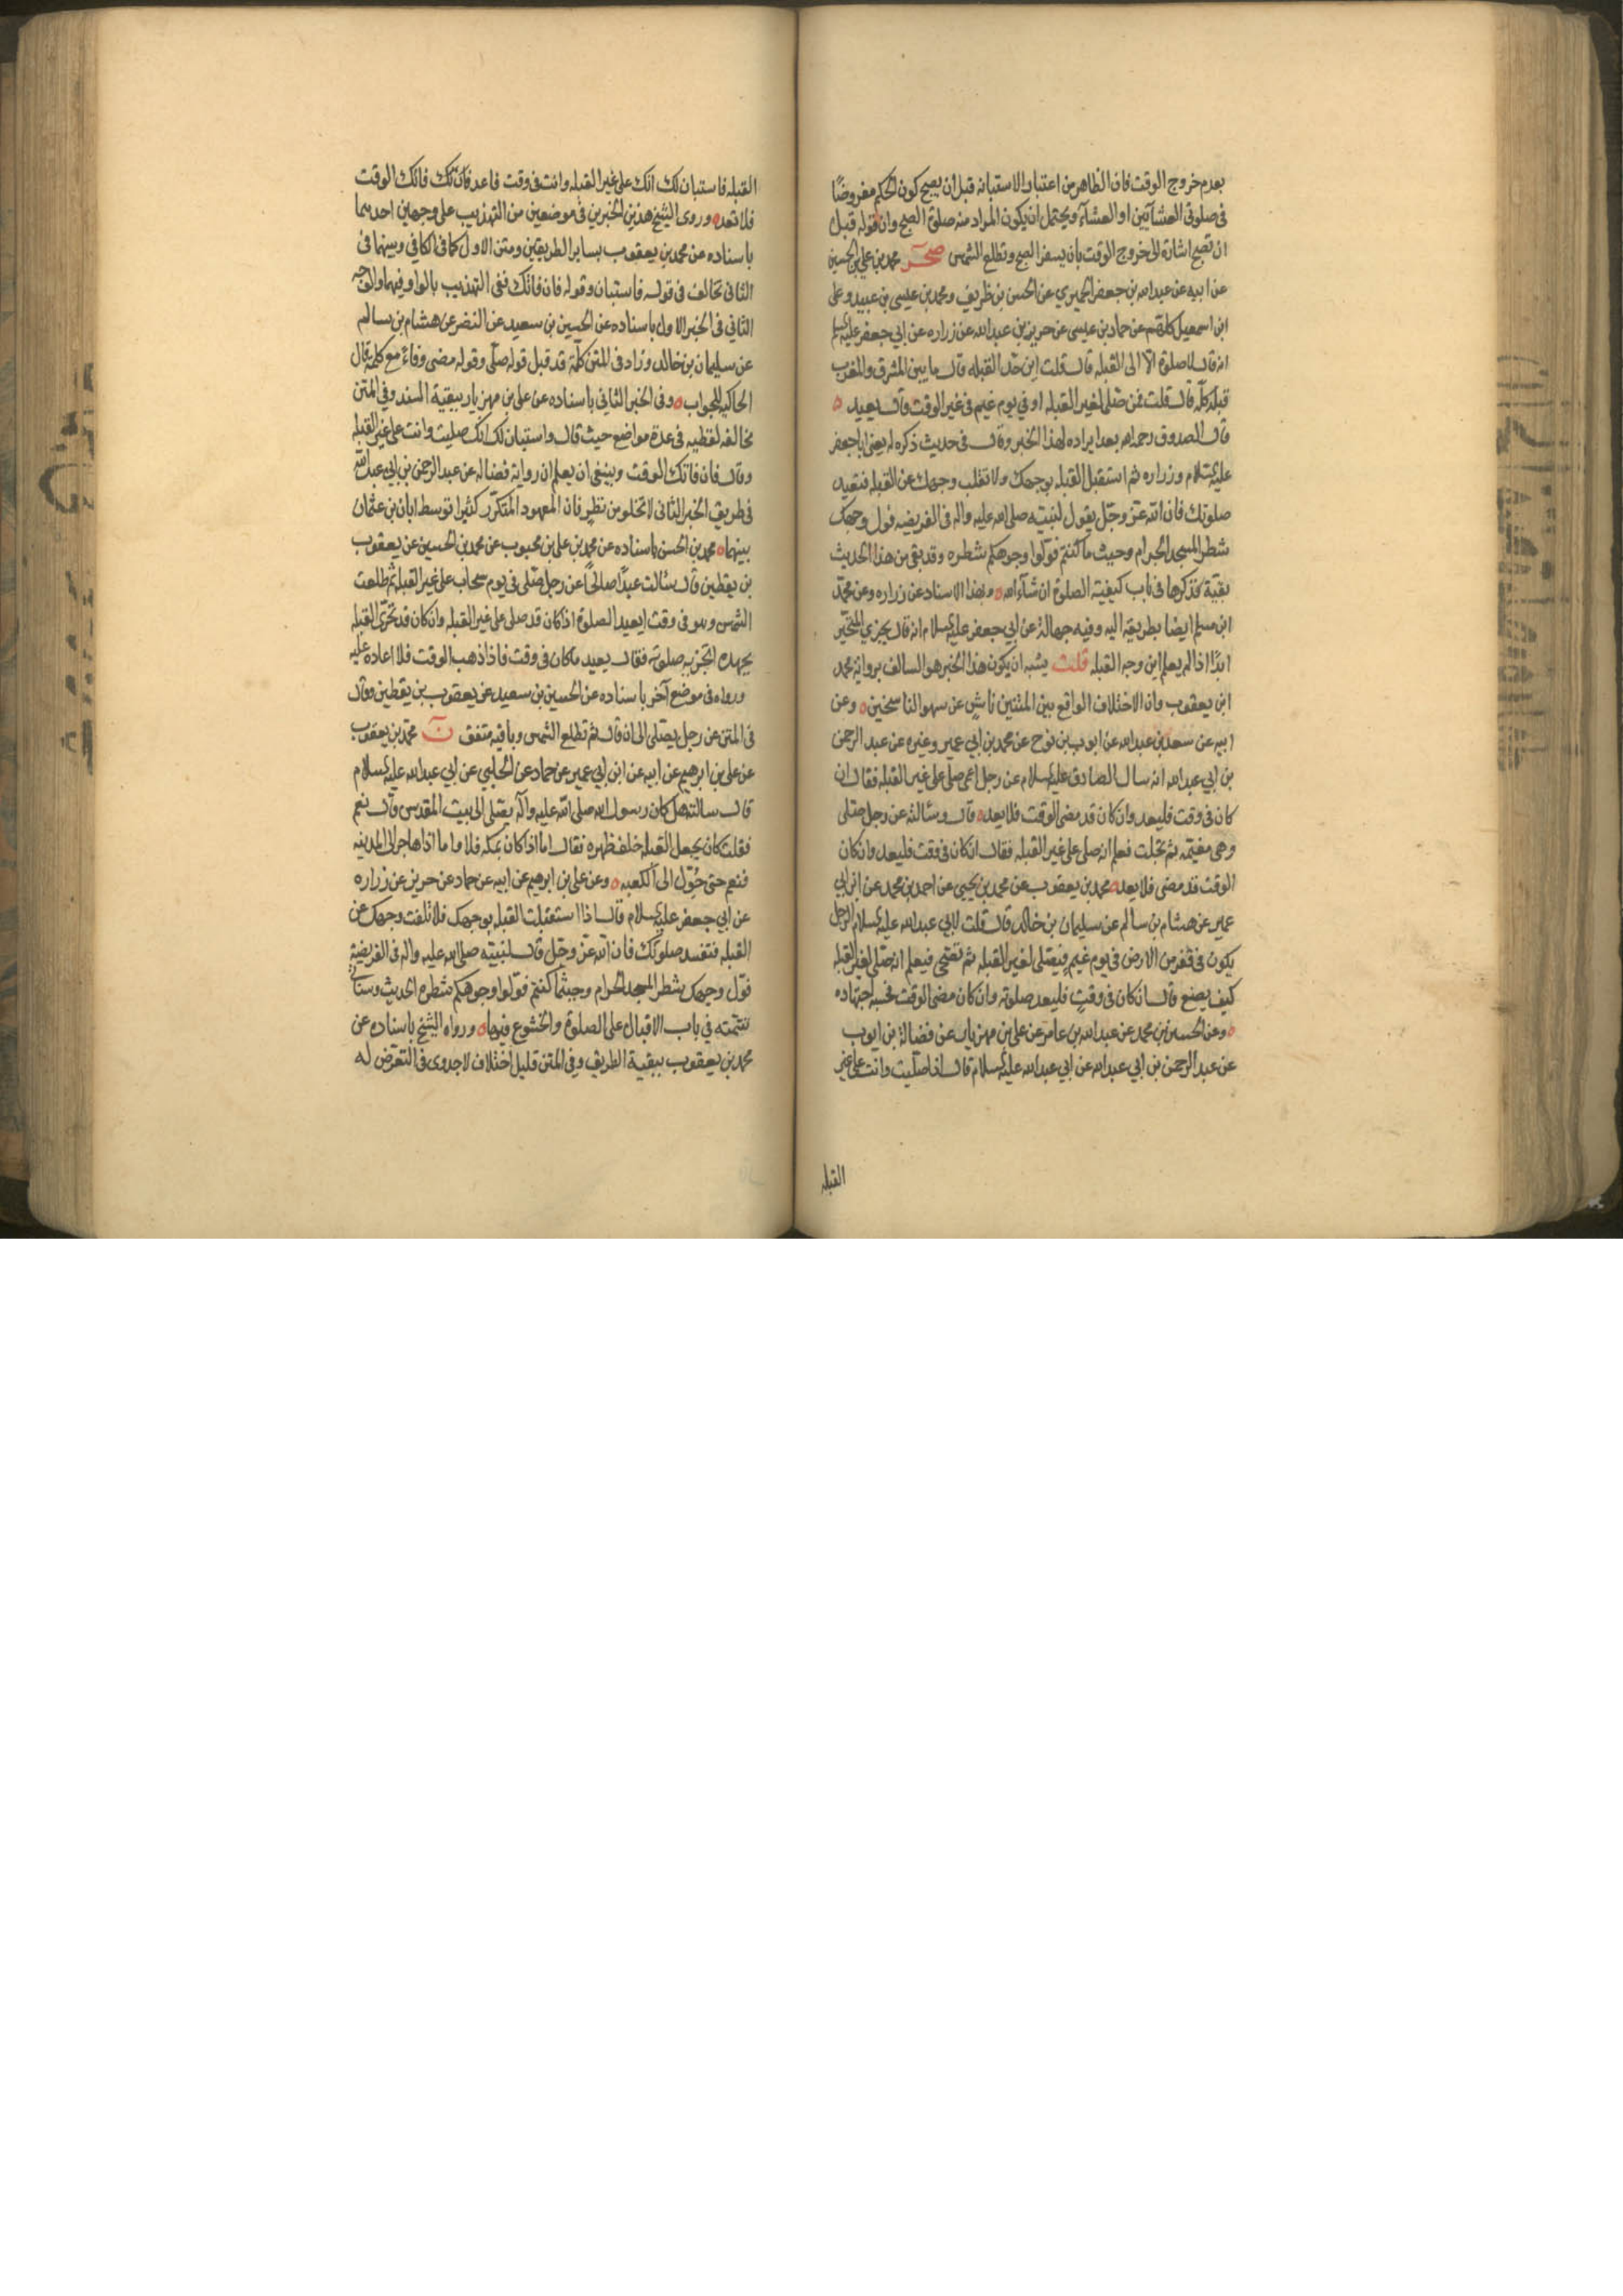 بعدم خروج الوقت فان الظاهر من اعتبار الاستبانة قبل ان يصبح كون الحكم مفروضًا
فى صلوتى العشآئين او العشآء ويحتمل ان يكون المراد منه صلوة الصبح وان قوله قبل
ان تصبح اشارة الى خروج الوقت بان يسفر الصبح وتطلع الشمس صحر محمد بن علي بن الحسين
عن ابيه عن عبدالله بن جعفر الحميري عن الحسن بن ظريف ومحمد بن عيسى بن عبيد وعلى
ابن اسمعيل كلهم عن حماد بن عيسى عن حريز بن عبدالله عن زراره عن ابي جعفر عليه السلم
انه قال لا صلوة الا الى القبله قال قلت اين حد القبله قال ما بين المشرق والمغرب
قبلة كله قال قلت فمن صلى لغير القبله او في يوم غيم فى غير الوقت قال يعيد ه
قال الصدوق رحمه الله بعد ايراده لهذا الخبر وقال فى حديث ذكره له يعنى ابا جعفر
عليه السلام وزراره ثم استقبل القبله بوجهك ولا تقلب وجهك عن القبله فتفسد
صلوتك فان الله عز وجل يقول لنبيه صلى الله عليه واله فى الفريضه فول وجهك
شطر المسجد الحرام وحيث ما كنتم فولوا وجوهكم شطره وقد بقى من هذا الحديث
بقية نذكرها فى باب كيفية الصلوة ان شآء الله ه وبهذا الاسناد عن زراره وعن محمد
ابن مسلم ايضا بطريقه اليه وفيه جهالة عن ابي جعفر عليه السلام انه قال يجزي المتحير
ابدًا اذا لم يعلم اين وجه القبله قلت يشبه ان يكون هذا الخبر هو السالف برواية محمد
ابن يعقوب وان الاختلاف الواقع بين المتنين ناشٍ عن سهو الناسخين ه وعن
ابيه عن سعد بن عبدالله عن ايوب بن نوح عن محمد بن ابي عمير وغيره عن عبد الرحمن
بن ابي عبدالله انه سال الصادق عليه السلام عن رجل اعمى صلى على غير القبله فقال ان
كان فى وقت فليعد وان كان قد مضى الوقت فلا يعد ه قال وسئالته عن رجل صلى
وهى مغيمه ثم تجلت فعلم انه صلى على غير القبله فقال ان كان فى وقت فليعد وان كان
الوقت قد مضى فلا يعد ه محمد بن يعقوب عن محمد بن يحيى عن احمد بن محمد عن ابن ابي
عمير عن هشام بن سالم عن سليمان بن خالد قال قلت لابي عبدالله عليه السلام الرجل
يكون فى قفر من الارض فى يوم غيم فيصلى لغير القبله ثم تضحى فيعلم انه صلى لغير القبله
كيف يصنع قال ان كان فى وقت فليعد صلوته وان كان مضى الوقت فحسبه اجتهاده
ه وعن الحسين بن محمد عن عبدالله بن عامر عن على بن مهزيار عن فضالة بن ايوب
عن عبد الرحمن بن ابي عبدالله عن ابي عبدالله عليه السلام قال اذا صليت وانت على غير
القبله
القبله فاستبان لك انك على غير القبله وانت فى وقت فاعد فان فاتك الوقت
فلا تعد ه وروى الشيخ هذين الخبرين فى موضعين من التهذيب على وجهين احدهما
باسناده عن محمد بن يعقوب بساير الطريقين ومتن الاول كما فى الكافي وبينهما فى
الثانى تخالف فى قوله فاستبان وقوله فان فاتك ففى التهذيب بالواو فيهما والوجه
الثاني فى الخبر الاول باسناده عن الحسين بن سعيد عن النضر عن هشام بن سالم
عن سليمان بن خالد وزاد فى المتن كلمة قد قبل قوله صلى وقوله مضى وفاءً مع كلمة قال
الحاكيه للجواب ه وفى الخبر الثانى باسناده عن على بن مهزيار ببقية السند وفى المتن
مخالفة لفظيه فى عدة مواضع حيث قال واستبان لك انك صليت وانت على غير القبله
وقال فان فاتك الوقت وينبغى ان يعلم ان رواية فضاله عن عبد الرحمن بن ابي عبدالله
فى طريق الخبر الثانى لا تخلو من نظر فان المعهود المتكرر كثيرا توسط ابان بن عثمان
بينهما ه محمد بن الحسن باسناده عن محمد بن على بن محبوب عن محمد بن الحسين عن يعقوب
بن يقطين قال سئالت عبدًا صالحًا عن رجل صلى فى يوم سحاب على غير القبله ثم طلعت
الشمس وهو فى وقت ايعيد الصلوة اذا كان قد صلى على غير القبله وان كان قد تحرى القبله
بجهده اتجزيه صلوته فقال يعيد ما كان فى وقت فاذا ذهب الوقت فلا اعادة عليه
ورواه فى موضع آخر باسناده عن الحسين بن سعيد عن يعقوب بن يقطين وقال
فى المتن عن رجل يصلى الى ان قال ثم تطلع الشمس وباقيه متفق ن محمد بن يعقوب
عن على بن ابرهيم عن ابيه عن ابن ابي عمير عن حماد عن الحلبي عن ابي عبدالله عليه السلام
قال سالته هل كان رسول الله صلى الله عليه وآله يصلى الى بيت المقدس قال نعم
فقلت كان يجعل القبلة خلف ظهره فقال اما اذا كان بمكه فلا واما اذا هاجر الى المدينه
فنعم حتى حُوِّل الى الكعبه ه وعن على بن ابرهيم عن ابيه عن حماد عن حريز عن زراره
عن ابي جعفر عليه السلام قال اذا استقبلت القبله بوجهك فلا تلفت وجهك عن
القبله فتفسد صلوتك فان الله عز وجل قال لنبيه صلى الله عليه واله فى الفريضة
فول وجهك شطر المسجد الحرام وحيثما كنتم فولوا وجوهكم شطره الحديث وستاتي
تتمته في باب الاقبال على الصلوة والخشوع فيها ه ورواه الشيخ باسناده عن
محمد بن يعقوب ببقية الطريق وفي المتن قليل اختلاف لا جدوى فى التعرض له